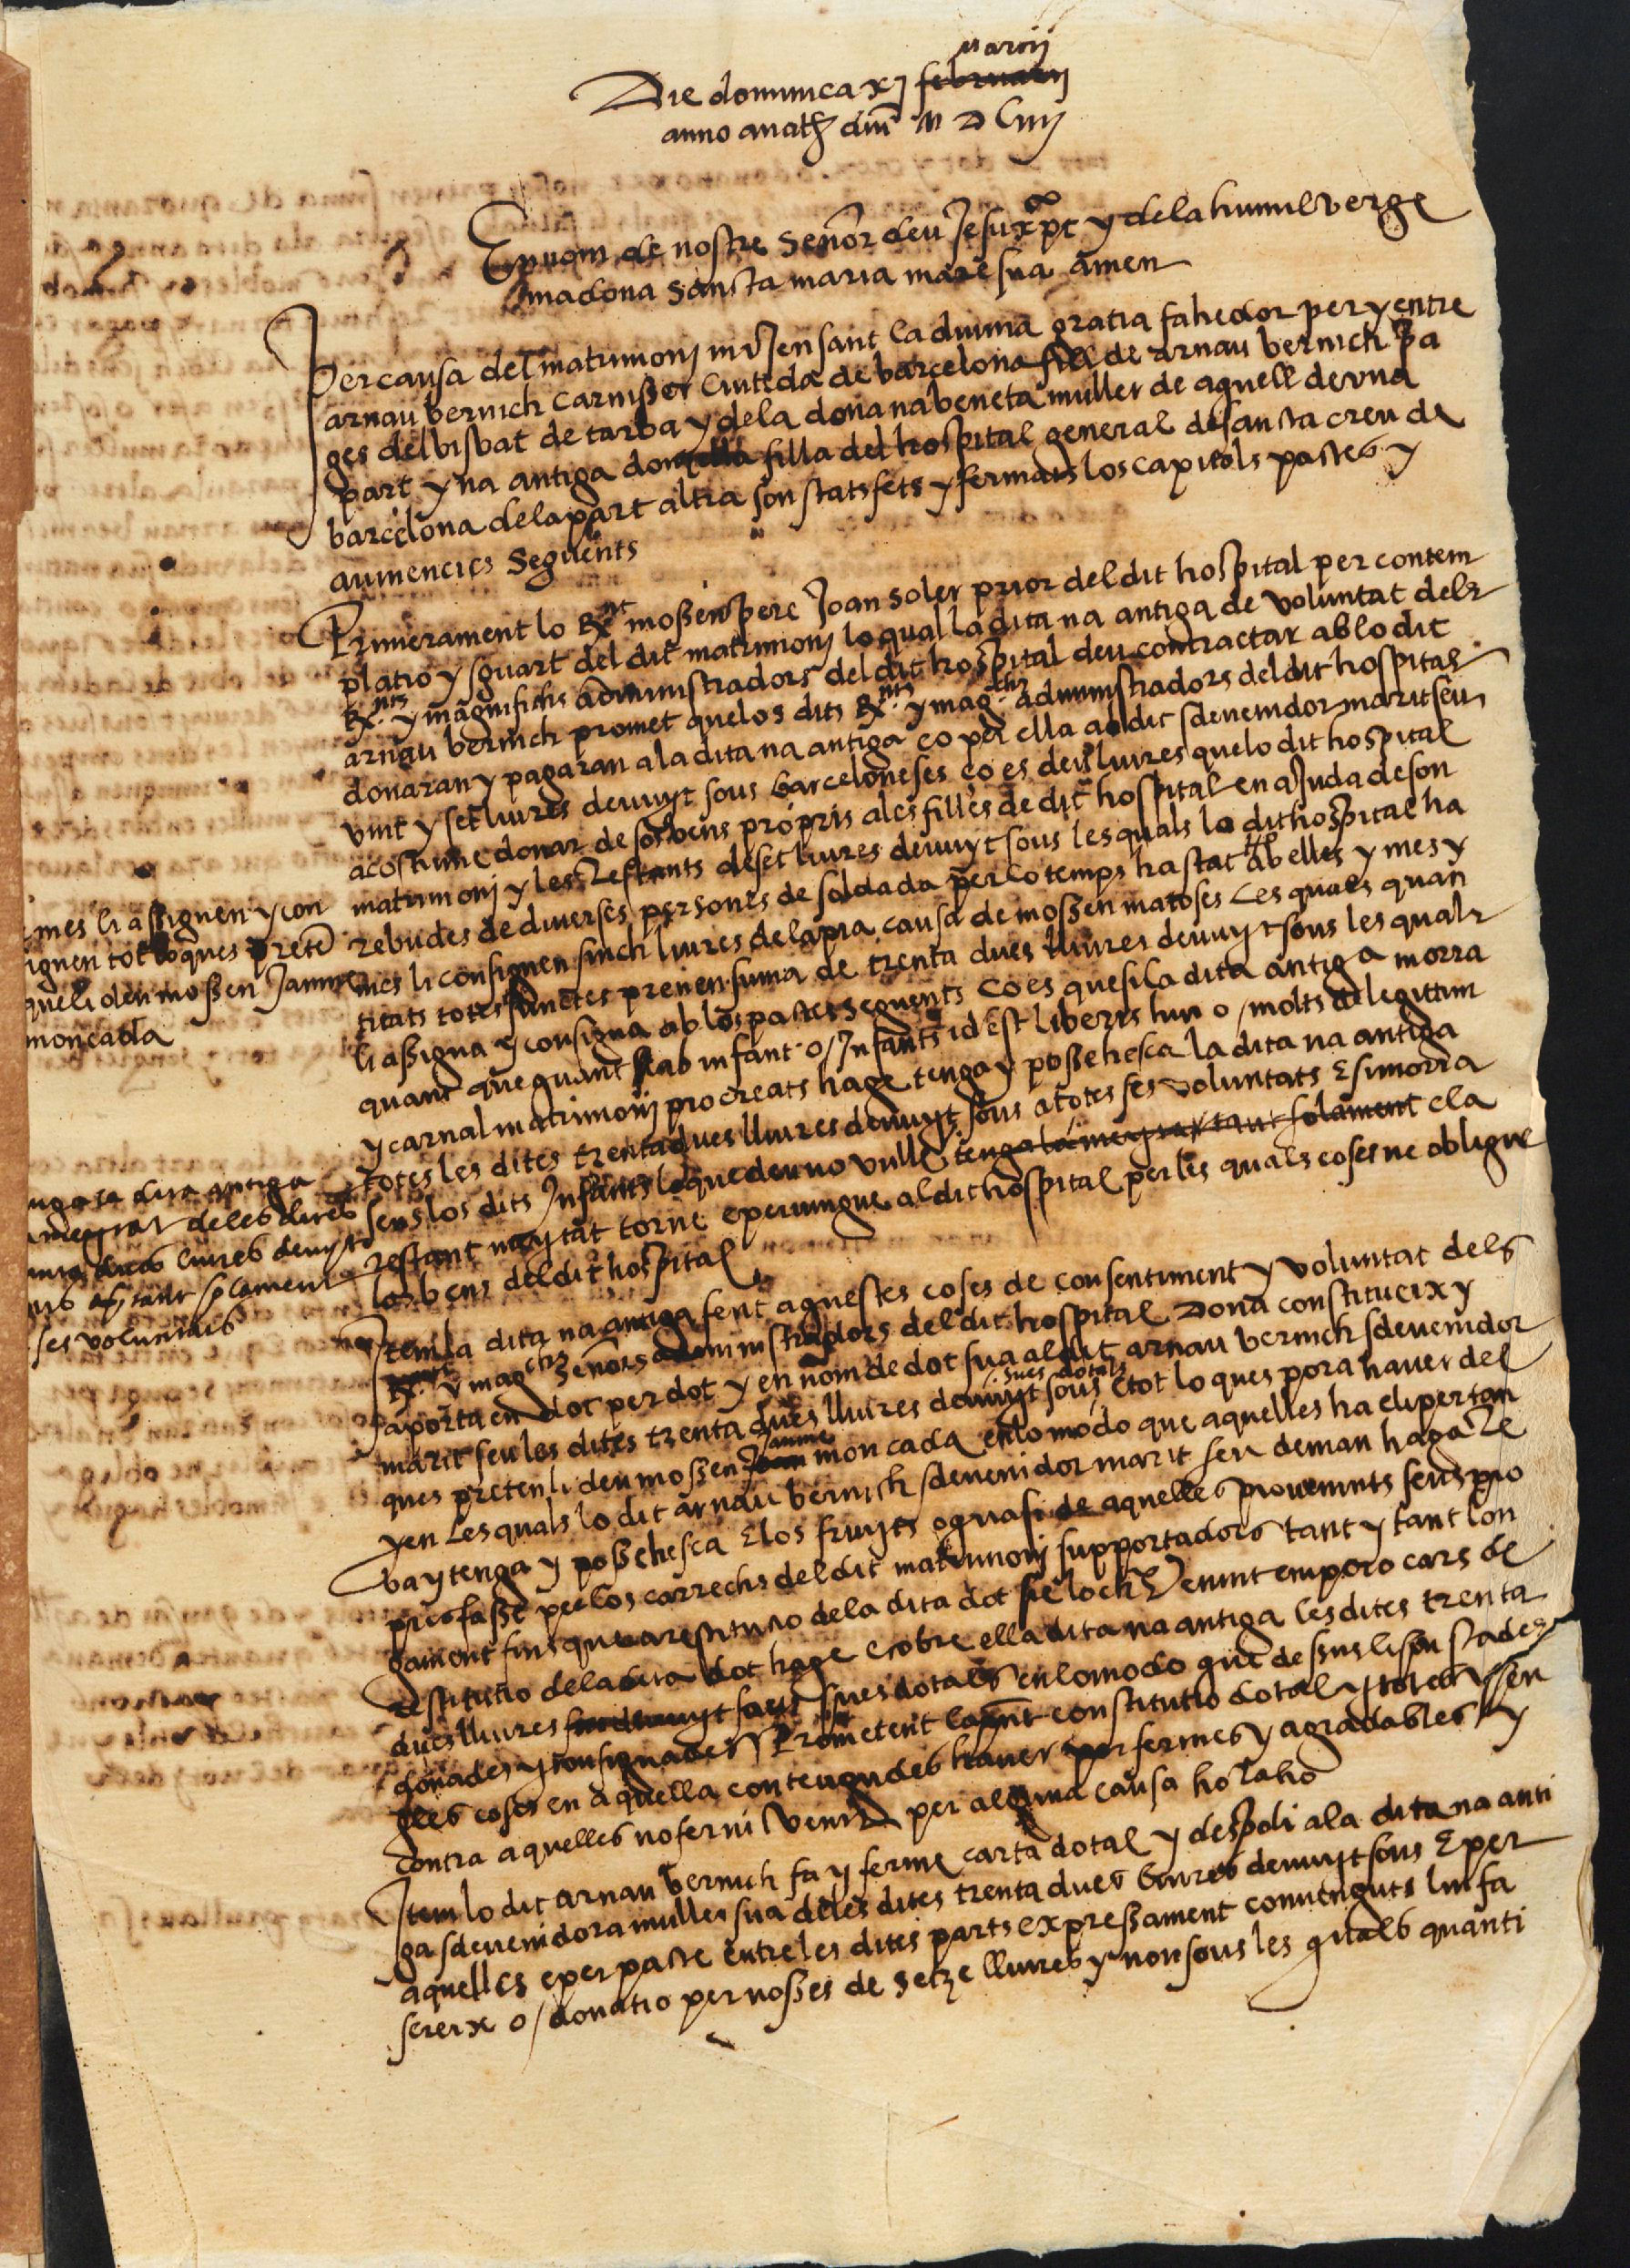 marcij
Die dominica xj februarij
anno a nat.e dni M D Liiij
En nom de nostre Senor deu Jesu xpt y dela humil verge
madona Sancta maria mare sua amen
Per causa del matrimonj mijensant la diuina gratia fahedor per y entre
arnau bernich carnisser Ciuteda de barcelona fill de arnau bernich pa
ges del bisbat de tarba y dela dona na beneta muller de aquell de vna
part y na antiga donzella filla del hospital general de sancta creu de
barcelona dela part altra son stats fets y fermats los capitols pactes y
auinencies Seguents
Primerament lo Rx.nt mossen pere Joan soler prior del dit hospital per contem
platio y sguart del dit matrimonj lo qual la dita na antiga de voluntat dels
Rx.nts y magnifichs administradors del dit hospital deu contractar ab lo dit
arnau bernich promet que los dits Rx.nts y mag.chs administradors del dit hospital
donaran y pagaran a la dita na antiga eo per ella al dit sdevenidor marit seu
vint y set liures deuuyt sous barceloneses ço es deu liures que lo dit hospital
acostume donar de sos bens propris a les filles de dit hospital en ajuda de son
matrimonj y les restants deset liures deuuyt sous les quals lo dit hospital ha
rebudes de diuerses persones de soldada per lo temps ha stat ab elles y mes y
mes li consignen sinch liures dela pia causa de mossen matoses Les quals quan
titats totes junctes prenen suma de trenta dues lliures deuuyt sous les quals
li assigna y consigna ab los pactes seguents ço es que si la dita antiga morra
quant que quant ab infant o / Infants id est liberis hun o / molts de legittim
y carnal matrimonj procreats hage tenga y possehesca la dita na antiga
totes les dites trenta dues lliures deuuyt sous a totes ses voluntats E si morra
sens los dits Infants lo que deu no vulle tenga la meytat tant solament e la
restant meytat torne e peruingue al dit hospital per les quals coses ne obligue
los bens del dit hospital
mes li assignen y con
signen tot lo ques preté
queli deu mossen Jaume
moncada
tenga la dita antiga
la meytat de les dites
trenta dues liures deuyt
sous tant solament
ses voluntats
Item la dita na antiga fent aquestes coses de consentiment y voluntat dels
Rx.nts y mag.chs Senors administradors del dit hospital Dona constitueix y
aporta en dot per dot y en nom de dot sua al dit arnau bernich sdeuenidor
sues dotals
marit seu les dites trenta dues lliures deuuyt sous e tot lo ques pora hauer del
Jaume
ques preten li deu mossen Joan moncada en lo modo que aquelles ha eli pertan
yen Les quals lo dit arnau bernich sdeuenidor marit seu deman haga re
ba y tenga y possehesca E los fruyts o guasi de aquelles prouenints seus pro
pris fasse per los carrechs del dit matrimonj supportadors tant y tant lon
gament fins que la restitutio dela dita dot sie loch E venint empero cars de
restitutio dela dita dot hage e cobre ella dita na antiga les dites trenta
dues lliures sues dotals en lo modo que dessus li son stades
donades y consignades Prometent la pnt constitutio dotal y totes y sen
gles coses en aquella contengudes hauer per fermes y agradables y
contra aquelles no fer ni venir per alguna causa ho raho
Item lo dit arnau bernich fa y ferme carta dotal y despoli a la dita na anti
ga sdeuenidora muller sua de les dites trenta dues liures deuuyt sous E per
aquelles e per pacte entre les dites parts expressament conuenguts lin fa
screix o / donatio per nosses de setze lliures y nou sous les quals quanti